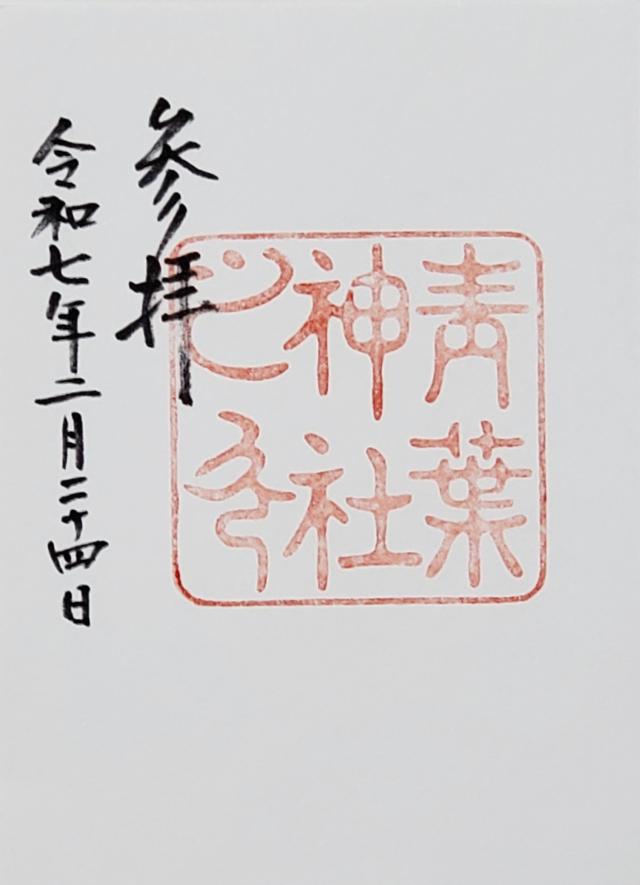 青葉
神社
之印
参拝
令和七年二月二十四日